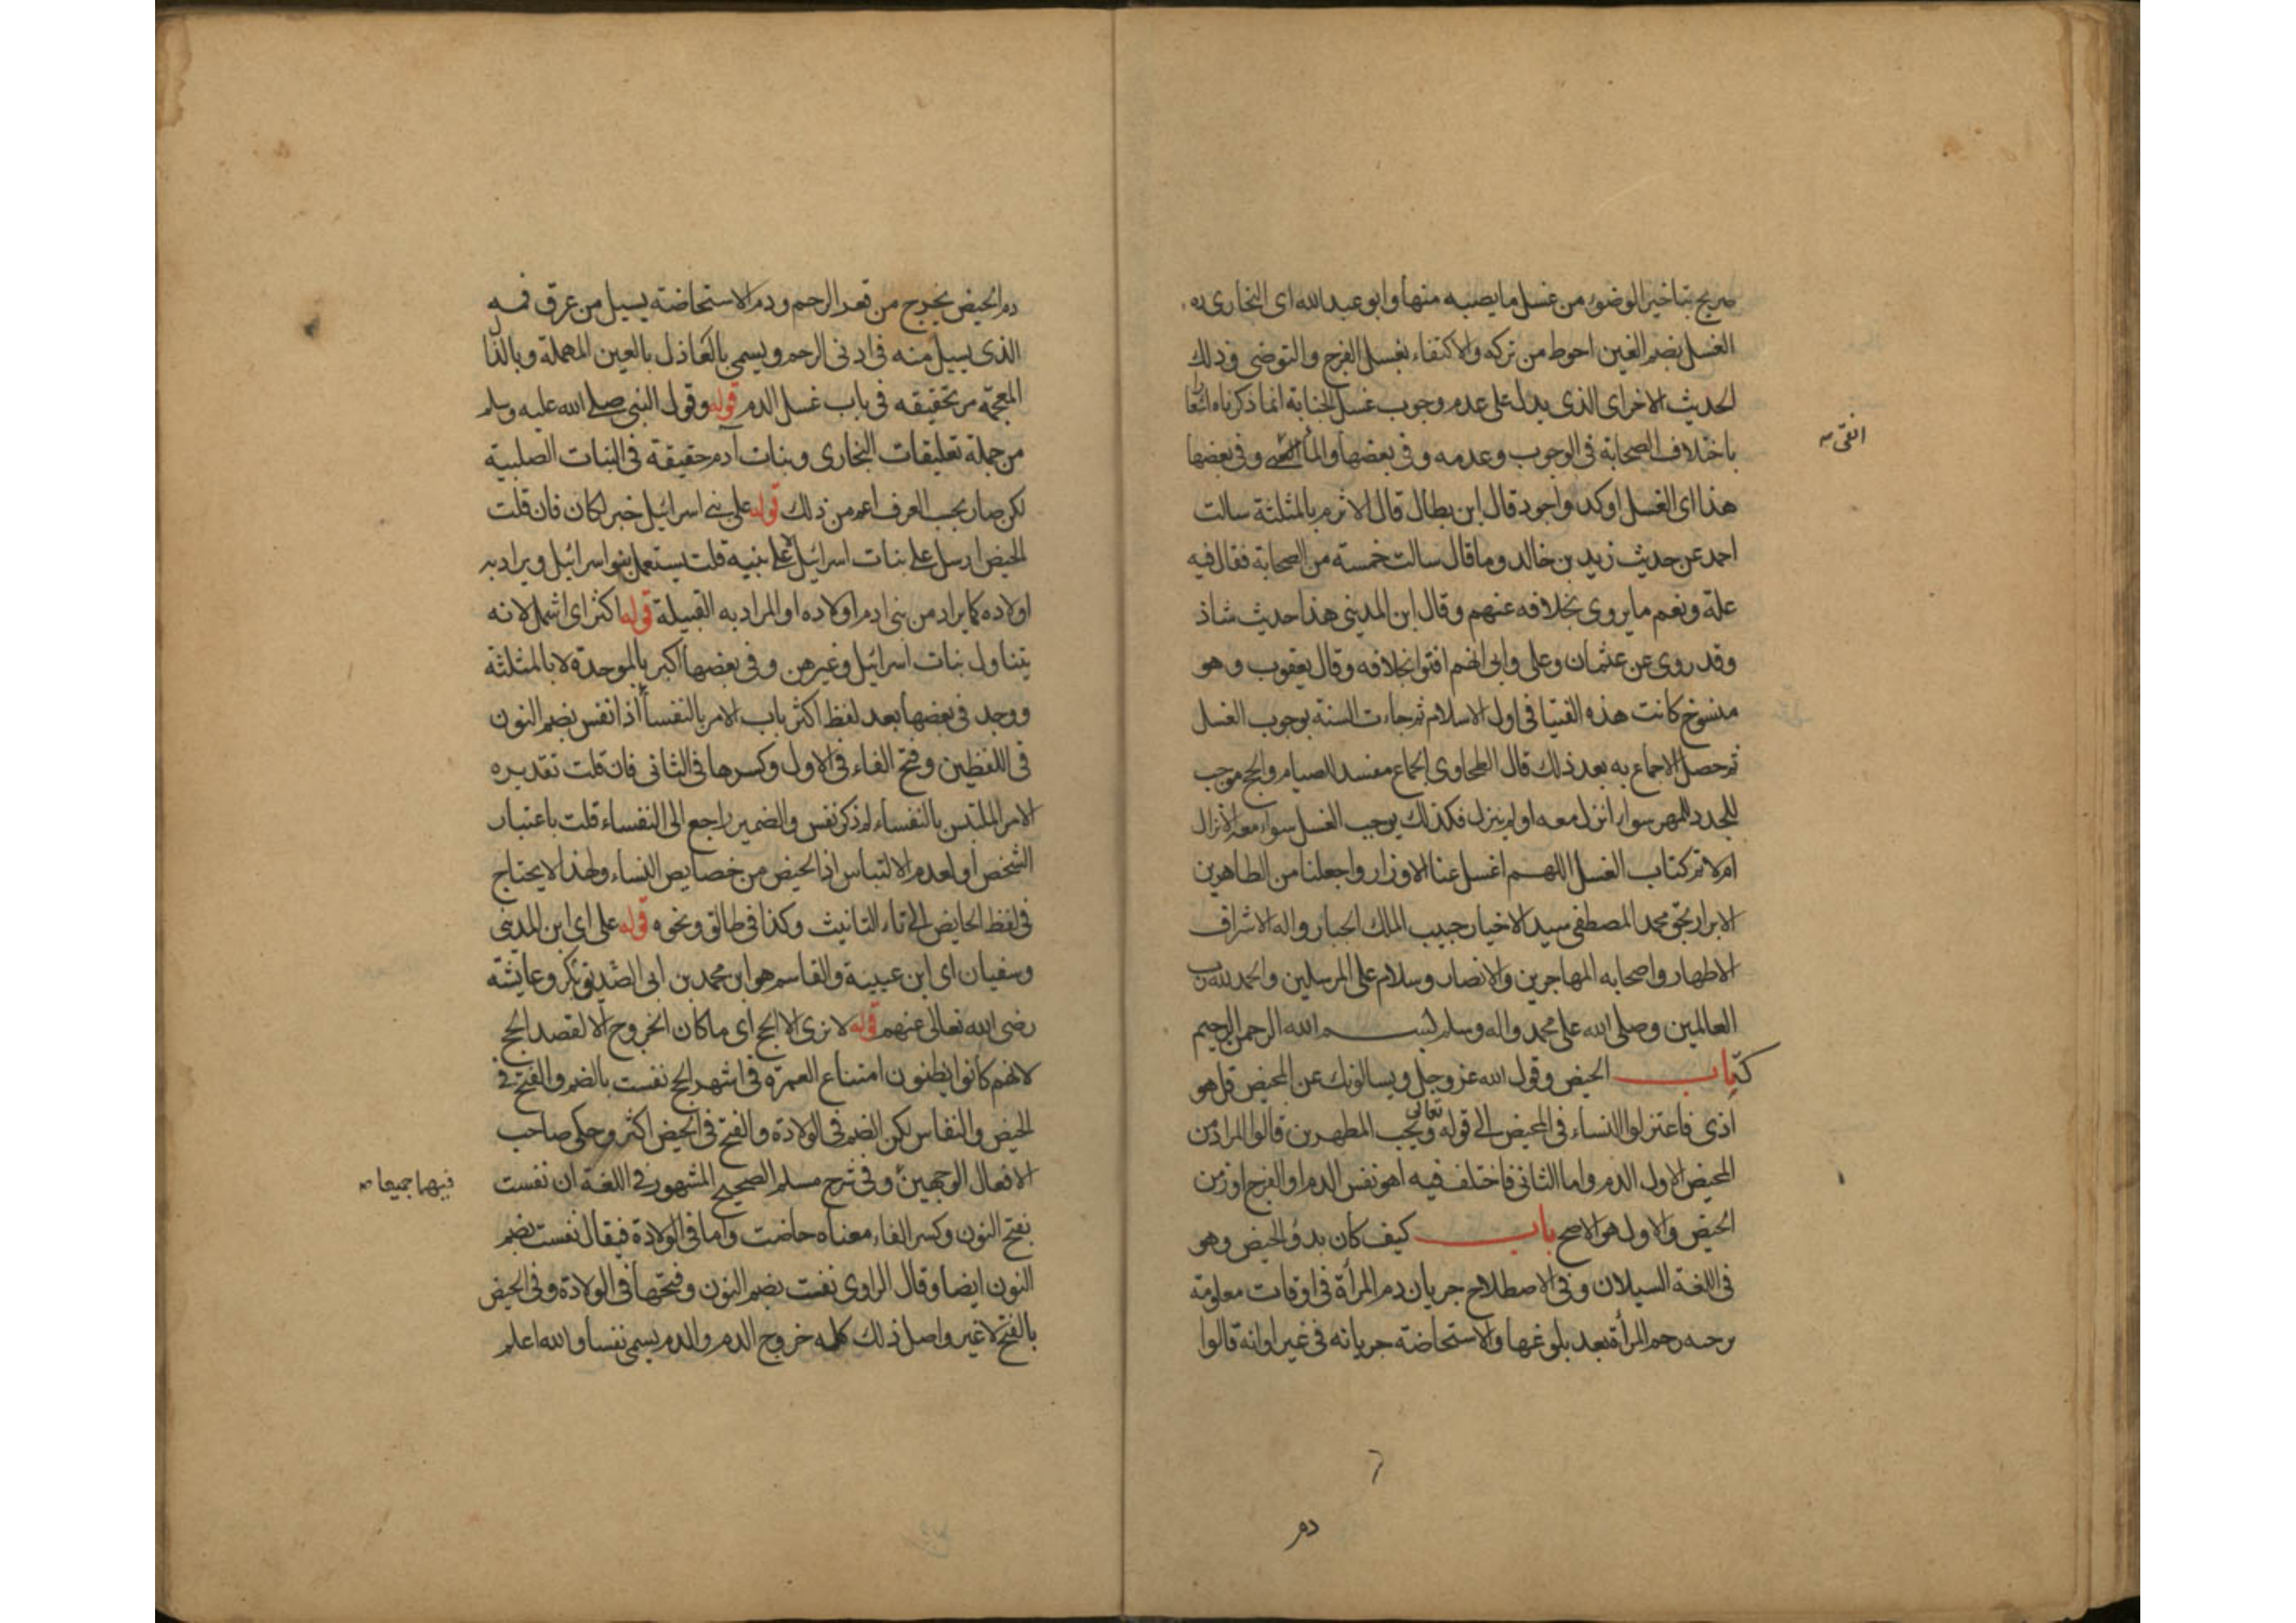 صريح بتاخير الوضوء من غسل ما يصيبه منها وابو عبد الله اى البخارى به
الغسل بضم الغين احوط من تركه والاكتفاء بغسل الفرج والتوضى وذلك
الحديث الاخر اى الذى يدل على عدم وجوب غسل الجنابة انما ذكرناه اشعارا
باختلاف الصحابة فى الوجوب وعدمه وفى بعضها والماء وفى بعضها
انقى
هذا اى الغسل اوكد واجود قال ابن بطال قال الاثرم بالمثلثة سالت
احمد عن حديث زيد بن خالد وما قال سالت خمسة من الصحابة فقال فيه
علة ونعم ما يروى بخلافه عنهم وقال ابن المدينى هذا حديث شاذ
وقد روى عن عثمان وعلى وابى انهم افتوا بخلافه وقال يعقوب وهو
منسوخ كانت هذه الفتيا فى اول الاسلام ثم جاءت السنة بوجوب الغسل
ثم حصل الاجماع به بعد ذلك قال الطحاوى الجماع مفسد للصيام والحج موجب
للحد وللمهر سواء انزل معه او لم ينزل فكذلك يوجب الغسل سواء معه الانزال
ام لا تم كتاب الغسل اللهم اغسل عنا الاوزار واجعلنا من الطاهرين
الابرار بحق محمد المصطفى سيد الاخيار حبيب الملك الجبار واله الاشراف
الاطهار واصحابه المهاجرين والانصار وسلام على المرسلين والحمد لله رب
العالمين وصلى الله على محمد واله وسلم بسم الله الرحمن الرحيم
كتاب الحيض وقول الله عز وجل ويسالونك عن المحيض قل هو
اذى فاعتزلوا النساء فى المحيض الى قوله تعالى ويحب المطهرين قالوا المراد من
المحيض الاول الدم واما الثانى فاختلف فيه اهو نفس الدم او الفرج او زمن
الحيض والاول هو الاصح باب كيف كان بدؤ الحيض وهو
فى اللغة السيلان وفى الاصطلاح جريان دم المراة فى اوقات معلومة
يرخيه رحم المرأة بعد بلوغها والاستحاضة جريانه فى غير اوانه قالوا
دم
دم الحيض يخرج من قعر الرحم ودم الاستحاضة يسيل من عرق فمه
الذى يسيل منه فى ادنى الرحم ويسمى بالعاذل بالعين المهملة وبالذال
المعجمة مر تحقيقه فى باب غسل الدم قوله وقول النبى صلى الله عليه وسلم
من جملة تعليقات البخارى وبنات آدم حقيقة فى البنات الصلبية
لكن صار بحسب العرف اعم من ذلك قوله على بنى اسرائيل خبر لكان فان قلت
الحيض ارسل على بنات اسرائيل لا على بنيه قلت يستعمل بنو اسرائيل ويراد به
اولاده كما يراد من بنى ادم اولاده او المراد به القبيلة قوله اكثر اى اشمل لانه
يتناول بنات اسرائيل وغيرهن وفى بعضها اكبر بالموحدة لا بالمثلثة
ووجد فى بعضها بعد لفظ اكثر باب الامر بالنفساء اذا نفس بضم النون
فى اللفظين وفتح الفاء فى الاول وكسرها فى الثانى فان قلت تقديره
الامر الملتبس بالنفساء لم ذكر نفس والضمير راجع الى النفساء قلت باعتبار
الشخص او لعدم الالتباس اذ الحيض من خصايص النساء ولهذا لا يحتاج
فى لفظ الحايض الى تاء التانيث وكذا فى طالق ونحوه قوله على اى ابن المدينى
وسفيان اى ابن عيينة والقاسم هو ابن محمد بن ابى بكر الصديق وعايشة
رضى الله تعالى عنهم قوله لا نرى الا الحج اى ما كان الخروج الا لقصد الحج
لانهم كانوا يظنون امتناع العمرة فى اشهر الحج نفست بالضم والفتح فى
الحيض والنفاس لكن الضم فى الولادة والفتح فى الحيض اكثر وحكى صاحب
الافعال الوجهين وفى شرح مسلم الصحيح المشهور فى اللغة ان نفست
فيهما جميعا
بفتح النون وكسر الفاء معناه حاضت واما فى الولادة فيقال نفست بضم
النون ايضا وقال الراوى نفست بضم النون وفتحها فى الولادة وفى الحيض
بالفتح لا غير واصل ذلك كله خروج الدم والدم يسمى نفسا والله اعلم